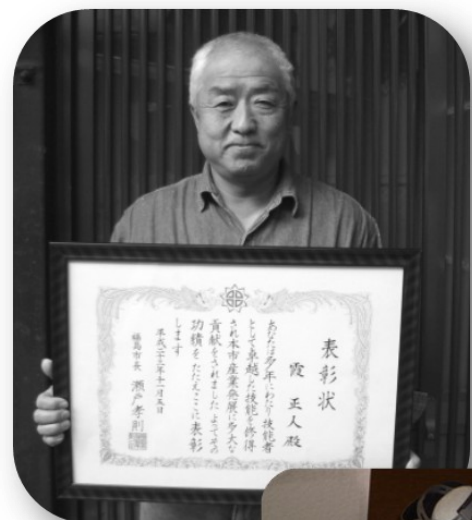 表彰状
霞 正人 殿
あなたは多年にわたり技能者
として卓越した技能を修得
され本市産業発展に多大な
貢献をされました よってその
功績をたたえここに表彰
します
平成二十三年十一月五日
福島市長 瀬戸孝則